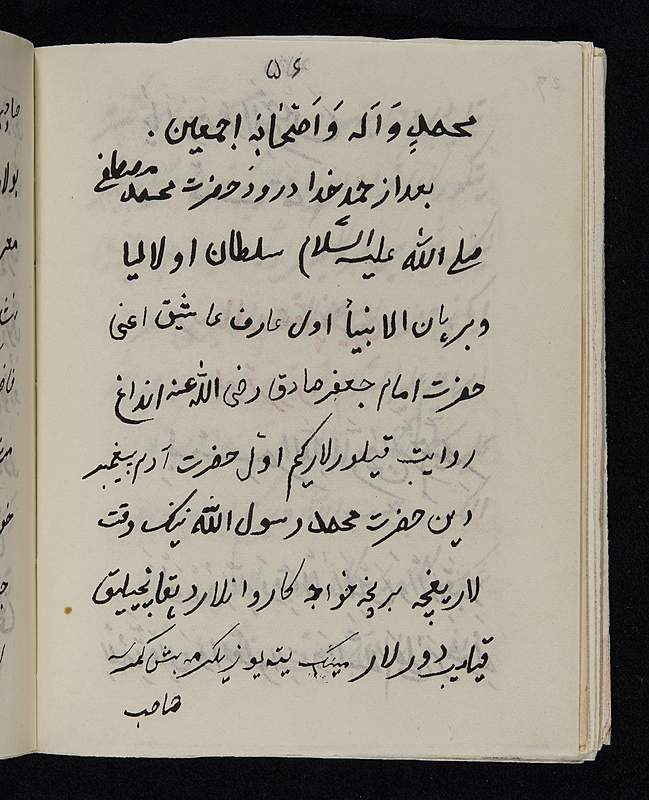 ۵۶
محمدٍ وَآله وَاَصْحَابِهٖ اجمعین .
بعد از حمد خدا درود حضرت محمد مصطفی
صلی الله علیه السّلام سلطان اولالیا
و برهان الانبیأ اول عارف عاشق اعنی
حضرت امام جعفر صادق رضی الله عنه انداغ
روایت قیلورلار کیم اوّل حضرت آدم پیغمبر
دین حضرت محمد رسول الله نینک وقت
لاریغچه برنچه خواجه کاروانلار دهقانچیلیق
قیلیب دورلار مینک یته یوز یکرمه بش کمرسه
صاحب